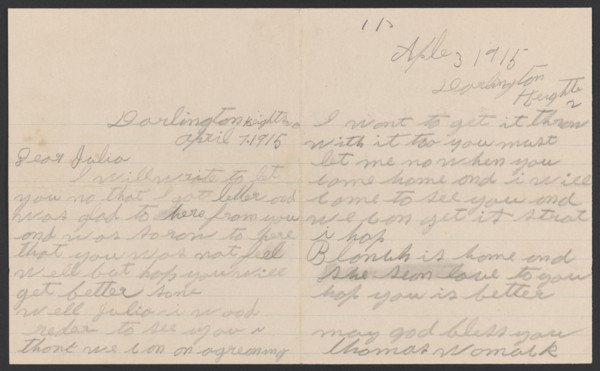 Darlington Hights va
April 7.1915
Dear Julia
I will write to let
you no that I got letter and
was glad to here from you
and was saron to here
that you was not feel
well but hop you will
get better sone
well Julia i wood
reder to see you i
thank we can on agreaning
Aple 3 1915
Darlington
Heughts
2
I wont to get it throw
with it too you must
let me now when you
come home and i will
come to see you and
we con get it strat
i hop
Blanch is home and
she sean love to you
hop you is better
may god bless you
thomas womack